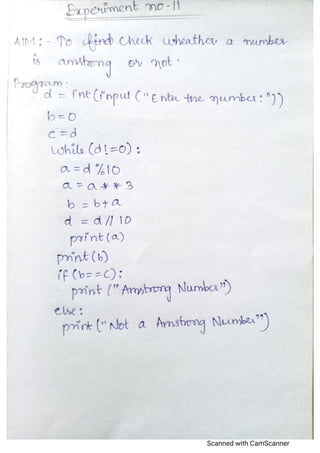 Experiment no-11
AIM:- To find Check wheather a number
is amstrong or not.
Program:
d = int(input ("Enter the number:"))
b=0
c=d
while (d!=0):
a=d%10
a=a**3
b=b+a
d=d//10
print(a)
print(b)
if(b==c):
print ("Amstrong Number")
else:
print("Not a Amstrong Number")
Scanned with CamScanner